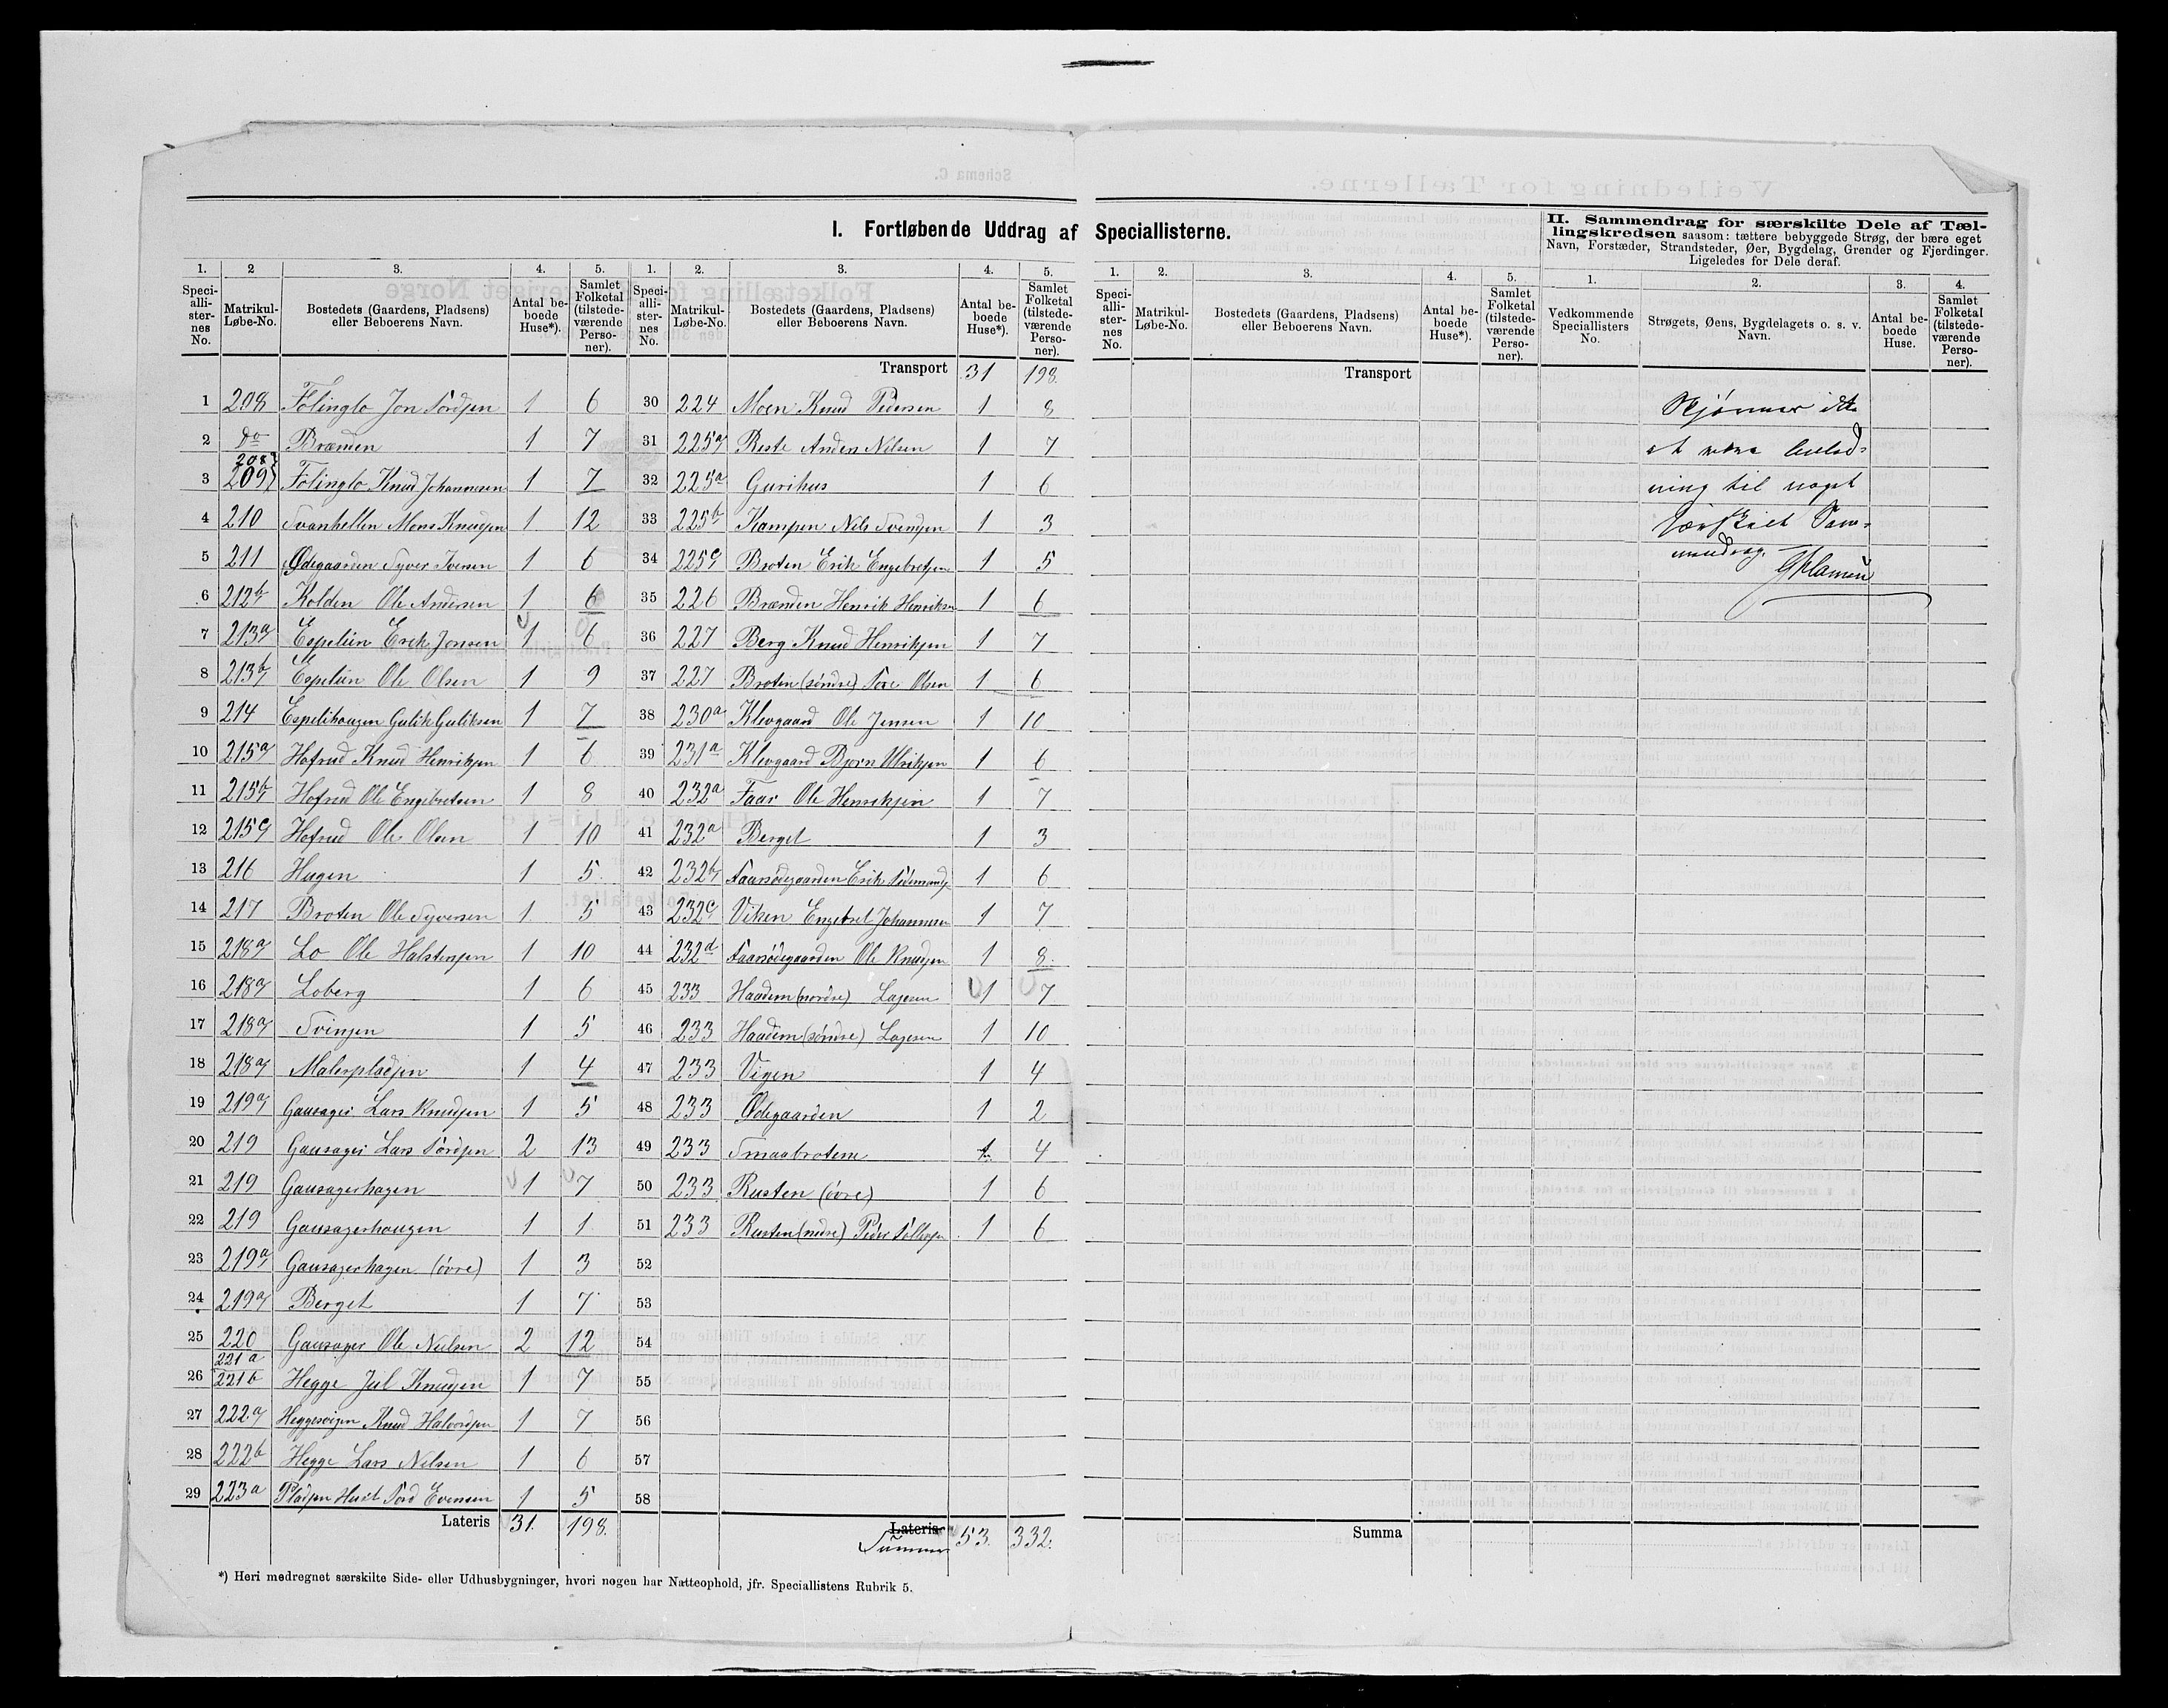 I. Fortløbende Uddrag af Speciallisterne.
II. Sammendrag for særskilte Dele af Tæl-
lingskredsen saasom: tættere bebyggede Strøg, der bære eget
Navn, Forstæder, Strandsteder, Øer, Bygdelag, Grender og Fjerdinger.
Ligeledes for Dele deraf.
1. 2 3. 4. 5. 1. 2. 3. 4. 5. 1. 2. 3. 4. 5. 1. 2. 3. 4.
Speci-alli-ster-nes No. Matrikul-Løbe-No. Bostedets (Gaardens, Pladsens) eller Beboerens Navn. Antal be-boede Huse*). Samlet Folketal (tilstede-værende Perso-ner).
Speci-alli-ster-nes No. Matrikul-Løbe-No. Bostedets (Gaardens, Pladsens) eller Beboerens Navn. Antal be-boede Huse*). Samlet Folketal (tilstede-værende Perso-ner).
Speci-alli-ster-nes No. Matrikul-Løbe-No. Bostedets (Gaardens, Pladsens) eller Beboerens Navn. Antal be-boede Huse*). Samlet Folketal (tilstede-værende Perso-ner).
Vedkommende Speciallisters No. Strøgets, Øens, Bygdelagets o. s. v. Navn. Antal be-boede Huse. Samlet Folketal (tilstede-værende Perso-ner).
1 208 Folinglo Jon Tordsen 1 6
2 Do Brænden 1 7
3 208 209 Folinglo Knud Johannesen 1 7
4 210 Svanhellen Mons Knudsen 1 12
5 211 Ødegaarden Syver Iversen 1 6
6 212b Kolden Ole Andersen 1 6
7 213a Espelien Erik Jonsen 1 6
8 213b Espelien Ole Olsen 1 9
9 214 Espelihougen Gulik Guliksen 1 7
10 215a Hofrud Knud Henriksen 1 6
11 215b Hofrud Ole Engebretsen 1 8
12 215c Hofrud Ole Olsen 1 10
13 216 Hugen 1 5
14 217 Broten Ole Syversen 1 5
15 218a Lo Ole Halstensen 1 10
16 218a Loberg 1 6
17 218a Svingen 1 5
18 218a Malerpladsen 1 4
19 219a Gausager Lars Knudsen 1 5
20 219 Gausager Lars Tordsen 2 13
21 219 Gausagerhagen 1 7
22 219 Gausagerhougen 1 1
23 219a Gausagerhagen (övre) 1 3
24 219a Berget 1 7
25 220 Gausager Ole Nielsen 2 12
26 221a 221b Hegge Jul Knudsen 1 7
27 222a Heggesvigen Knud Halvordsen 1 7
28 222b Hegge Lars Nilsen 1 6
29 223a Pladsen Huset Tord Evensen 1 5
Lateris 31. 198.
Transport 31 198.
30 224 Moen Knud Pedersen 1 8
31 225a Reste Anders Nilsen 1 7
32 225a Gurihus 1 6
33 225b Kampen Nils Svendsen 1 3
34 225c Broten Erik Engebretsen 1 5
35 226 Brænden Henrik Henriksen 1 6
36 227 Berg Knud Henriksen 1 7
37 227 Broten (söndre) Tore Olsen 1 6
38 230a Klevgaard Ole Jensen 1 10
39 231a Klevgaard Bjorn Ulriksen 1 6
40 232a Faar Ole Henriksen 1 7
41 232a Berget 1 3
42 232b Faarsödegaarden Erik 1 6
43 232c Viken Engebret Johannesen 1 7
44 232d Faarsödegaarden Ole Knudsen 1 8
45 233 Haadem (nordre) Lagesen 1 7
46 233 Haadem (söndre) Lagesen 1 10
47 233 Vigen 1 4
48 233 Ødegaarden 1 2
49 233 Smaabrotene 1 4
50 233 Rusten (övre) 1 6
51 233 Rusten (nedre) Peder 1 6
52
53
54
55
56
57
58
Lateris
Summa 53. 332.
Transport
Summa
Skjönner ikke
at være anled-
ning til noget
særskilt Sam-
mendrag.
*) Heri medregnet særskilte Side- eller Udhusbygninger, hvori nogen har Natteophold, jfr. Speciallistens Rubrik 5.